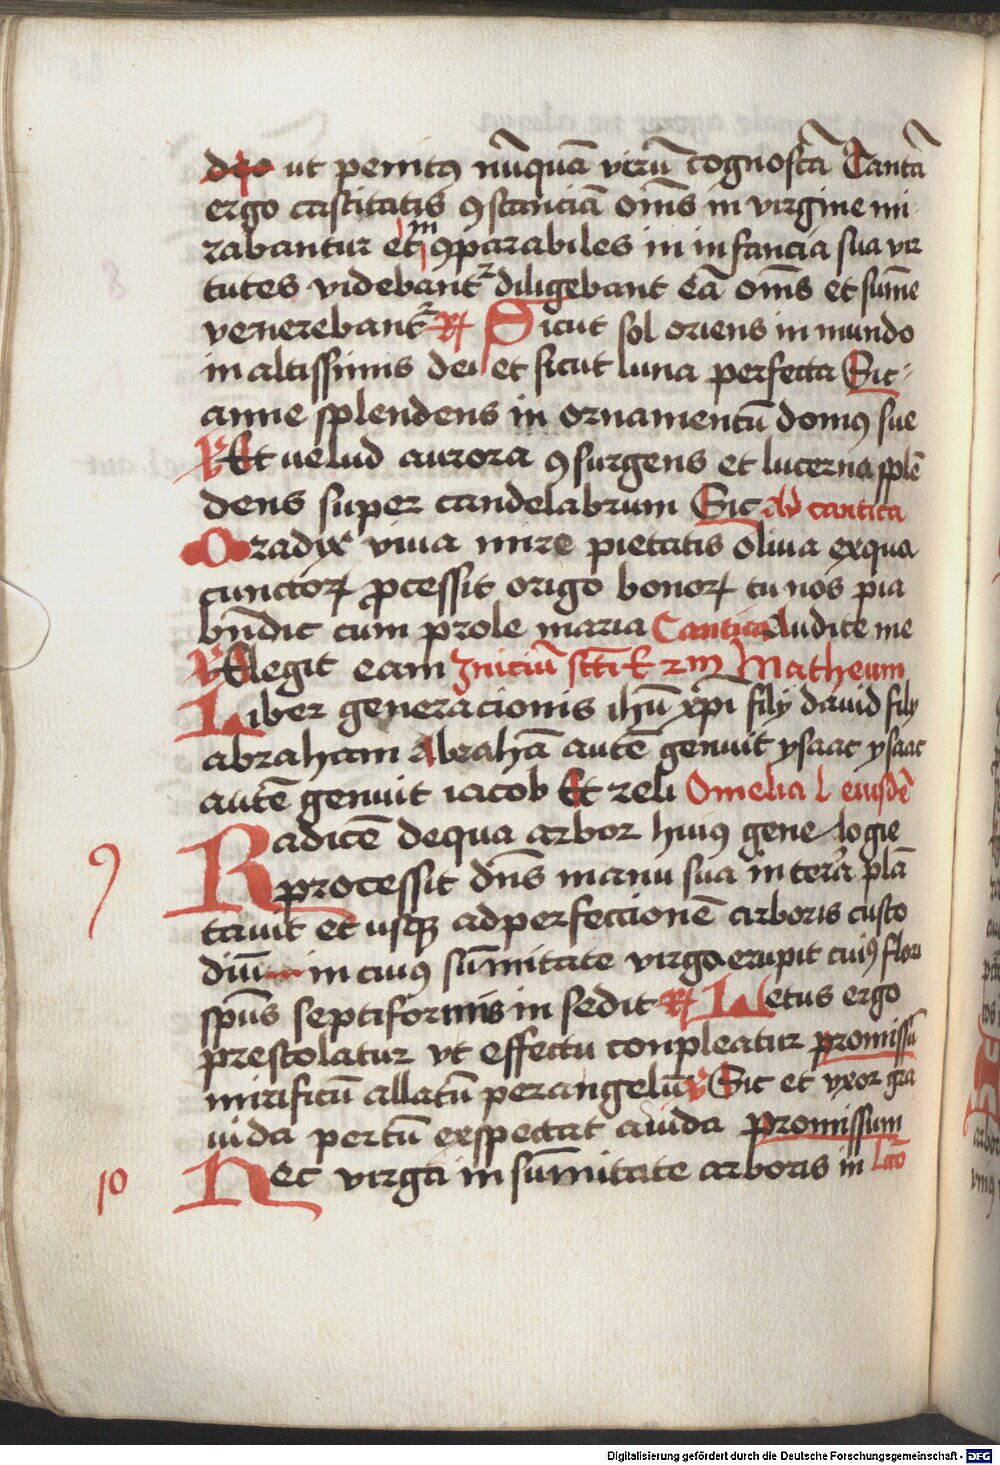 deo ut penitꝰ nūquā virū cognoscā Tantā
ergo castitatis ꝯstanciā om̄s in virgine mi
rabantur et inꝯparabiles in infancia sua vir
tutes videbantᷣ diligebant eā om̄s et sūme
venerebantᷣ R̷ Sicut sol oriens in mundo
in altissimis dei et sicut luna perfecta Sic
anne splendens in ornamentū domꝰ sue
V̷ Et uelud aurora ꝯsurgens et lucerna splē
dens super candelabrum Sic ad cantica
O radix viua mire pietatis oliua exqua
cunctoꝝ p̄cessit origo bonoꝝ tu nos pia
bn̄dic cum prole maria Cantica Audite me
V̷ Elegit eam Iniciū sc̄ti ew̄ 2m Matheum
Liber generacionis ihū xp̄i filij dauid filij
abraham Abrahā autē genuit ysaac ysaac
autē genuit iacob Et reli Omelia l eiusdē
9 Radicē dequa arbor huiꝰ gene logie
processit dn̄s manu sua in terra plā
tauit et usqꝫ adperfectionē arboris custo
diuit in cuiꝰ sūmitate virga erupit cuiꝰ flori
sp̄us septiformis in sedit R̷ Letus ergo
prestolatur vt effectu conpleatur promissū
mirificū allatū perangelū V̷ Sic et vxor gra
uida pertū exspectat auida promissum
10 Hec virga in sūmitate arboris in lc̄o
Digitalisierung gefördert durch die Deutsche Forschungsgemeinschaft - DFG